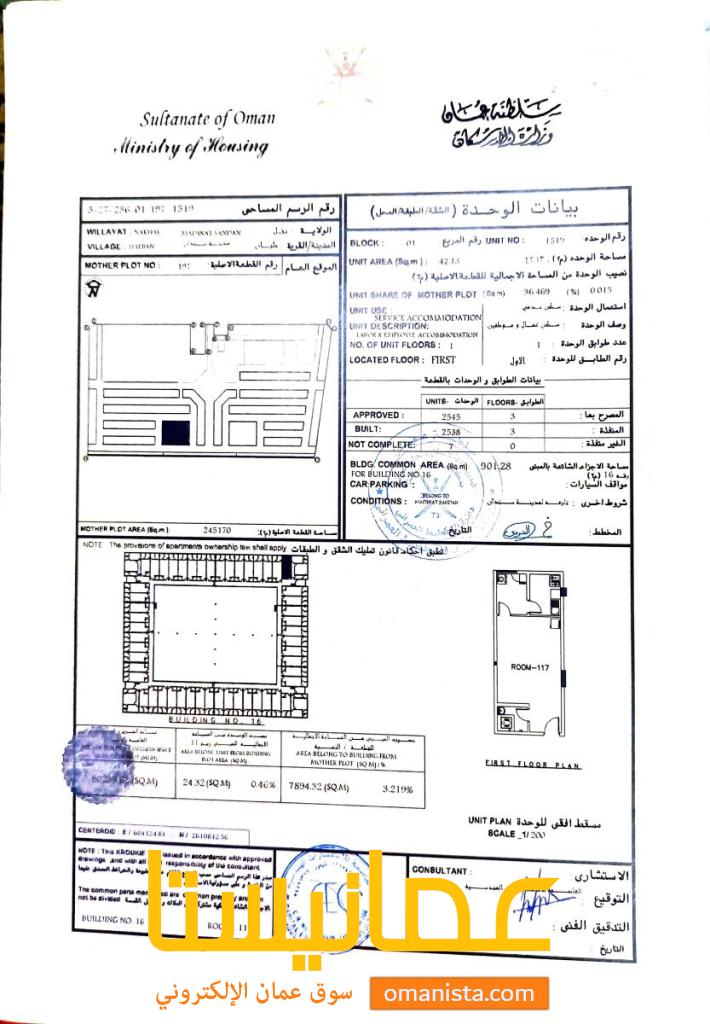 Sultanate of Oman
Ministry of Housing
سلطنة عمان
وزارة الإسكان
5-27-286-01-197-1519
رقم الرسم المساحي
WILLAYAT : NAKHAL
MADINAT SANDAN
نخل
الولاية :
VILLAGE : HALBAN
مدينة سندان
حلبان
المدينة/القرية :
MOTHER PLOT NO : 197
رقم القطعة الاصلية :
الموقع العام
N
MOTHER PLOT AREA (Sq.m) : 245170
مساحة القطعة الاصلية (م٢) :
بيانات الوحدة (الشقة/الطبقة/المحل)
BLOCK : 01
رقم المربع
UNIT NO : 1519
رقم الوحده :
UNIT AREA (Sq.m) : 42.13
٤٢.١٣
مساحة الوحده (م٢) :
نصيب الوحدة من المساحة الاجمالية للقطعة الاصلية (م٢)
UNIT SHARE OF MOTHER PLOT (Sq.m) 36.469 (%) 0.015
UNIT USE :
SERVICE ACCOMMODATION
سكني خدمي
استعمال الوحدة :
UNIT DESCRIPTION:
LABOR & EMPLOYEE ACCOMMODATION
سكني عمال و موظفين
وصف الوحدة :
NO. OF UNIT FLOORS : 1
1
عدد طوابق الوحدة :
LOCATED FLOOR : FIRST
الاول
رقم الطابق للوحدة :
بيانات الطوابق و الوحدات بالقطعة
UNITS- الوحدات
FLOORS- الطوابق
APPROVED : 2545 3 المصرح بها :
BUILT: 2538 3 المنفذة :
NOT COMPLETE: 7 0 الغير منفذة :
BLDG. COMMON AREA (Sq m) 901.28
FOR BUILDING NO.16
مساحة الاجزاء الشائعة بالمبنى
رقم 16 (م٢)
CAR PARKING :
مواقف السيارات :
CONDITIONS :
BELONG TO
MADINAT SANDAN
تابعه لمدينة سندان
شروط اخرى :
T3
التاريخ :
المخطط :
NOTE : The provisions of apartments ownership law shall apply
تطبق احكام قانون تمليك الشقق و الطبقات
BUILDING NO. 16
ROOM-117
FIRST FLOOR PLAN
AREA BELONG UNIT FROM BUILDING
PLOT AREA (SQ.M)
AREA BELONG TO BUILDING FROM
MOTHER PLOT (SQ.M) / %
24.32 (SQ.M) 0.46%
7894.32 (SQ.M) 3.219%
UNIT PLAN مسقط افقي للوحدة
SCALE _1/200
CENTEROID : E /
N /
NOTE : This KROUKIE issued in accordance with approved
drawings and with all responsibility of the consultant
The common parts
not be divided
BUILDING NO. 16
CEC
CONSULTANT :
الاستشاري :
التوقيع :
التدقيق الفني :
التاريخ :
عمانيستا
سوق عمان الإلكتروني
omanista.com